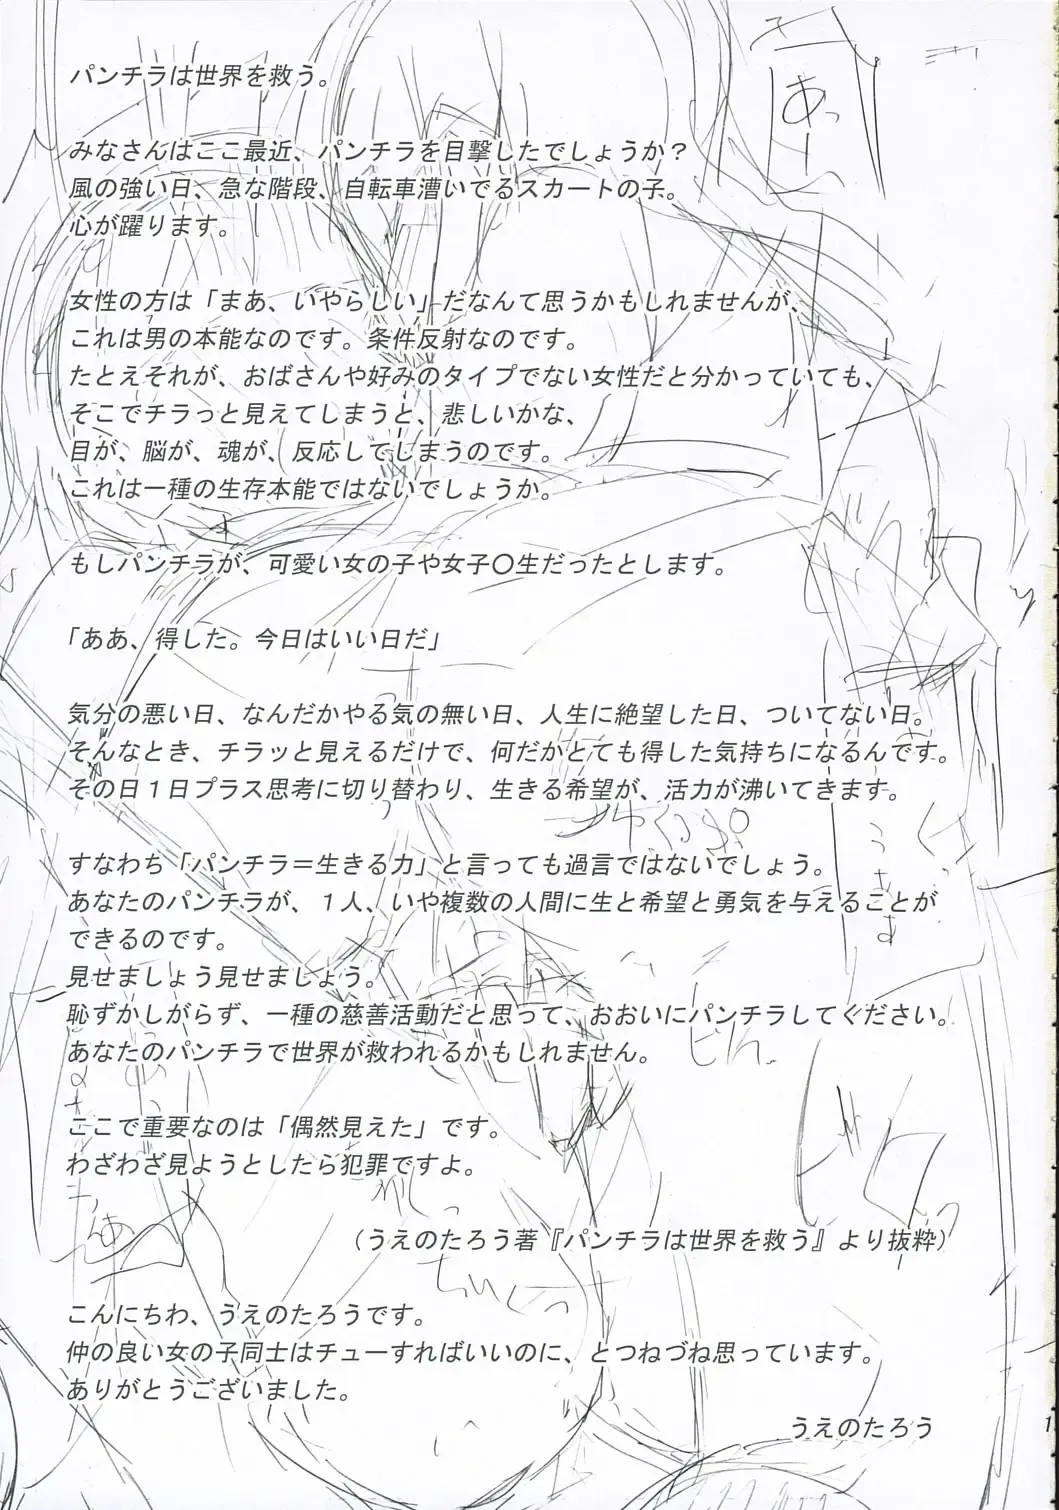 パンチラは世界を救う。
みなさんはここ最近、パンチラを目撃したでしょうか？
風の強い日、急な階段、自転車漕いでるスカートの子。
心が躍ります。
女性の方は「まあ、いやらしい」だなんて思うかもしれませんが、
これは男の本能なのです。条件反射なのです。
たとえそれが、おばさんや好みのタイプでない女性だと分かっていても、
そこでチラっと見えてしまうと、悲しいかな、
目が、脳が、魂が、反応してしまうのです。
これは一種の生存本能ではないでしょうか。
もしパンチラが、可愛い女の子や女子〇生だったとします。
「ああ、得した。今日はいい日だ」
気分の悪い日、なんだかやる気の無い日、人生に絶望した日、ついてない日。
そんなとき、チラッと見えるだけで、何だかとても得した気持ちになるんです。
その日１日プラス思考に切り替わり、生きる希望が、活力が沸いてきます。
すなわち「パンチラ＝生きる力」と言っても過言ではないでしょう。
あなたのパンチラが、１人、いや複数の人間に生と希望と勇気を与えることが
できるのです。
見せましょう見せましょう。
恥ずかしがらず、一種の慈善活動だと思って、おおいにパンチラしてください。
あなたのパンチラで世界が救われるかもしれません。
ここで重要なのは「偶然見えた」です。
わざわざ見ようとしたら犯罪ですよ。
（うえのたろう著『パンチラは世界を救う』より抜粋）
こんにちわ、うえのたろうです。
仲の良い女の子同士はチューすればいいのに、とつねづね思っています。
ありがとうございました。
うえのたろう